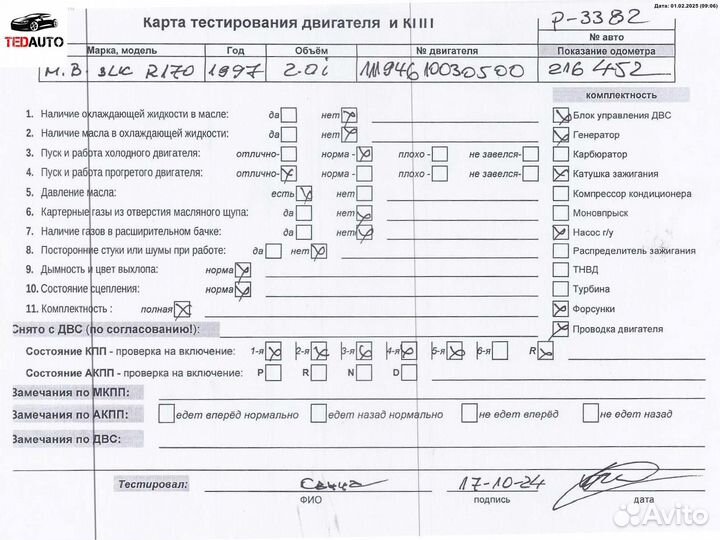 Дата: 01.02.2025 (09:06)
TEDAUTO
Карта тестирования двигателя и КПП
P-3382
№ авто
Марка, модель Год Объём № двигателя Показание одометра
M.B. SLK R170 1997 2.0i 11194610030500 216 452
комплектность
1. Наличие охлаждающей жидкости в масле: да нет
Блок управления ДВС
2. Наличие масла в охлаждающей жидкости: да нет
Генератор
3. Пуск и работа холодного двигателя: отлично- норма - плохо - не завелся-
Карбюратор
4. Пуск и работа прогретого двигателя: отлично- норма - плохо - не завелся-
Катушка зажигания
5. Давление масла: есть нет
Компрессор кондиционера
6. Картерные газы из отверстия масляного щупа: да нет
Моновпрыск
7. Наличие газов в расширительном бачке: да нет
Насос г/у
8. Посторонние стуки или шумы при работе: да нет
Распределитель зажигания
9. Дымность и цвет выхлопа: норма
ТНВД
10. Состояние сцепления: норма
Турбина
11. Комплектность : полная
Форсунки
Снято с ДВС (по согласованию!):
Проводка двигателя
Состояние КПП - проверка на включение: 1-я 2-я 3-я 4-я 5-я 6-я R
Состояние АКПП - проверка на включение: P R N D
Замечания по МКПП:
Замечания по АКПП: едет вперёд нормально едет назад нормально не едет вперёд не едет назад
Замечания по ДВС:
Тестировал: 17-10-24
ФИО подпись дата
Avito